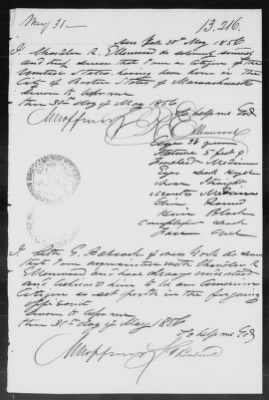 May 31 —
13,216.
New York 30th May 1856
I Chandler R. Ellenwood do solemnly
and truly swear that I am a Citizen of the
United States, having been born in the
City of Boston State of Massachusetts
Sworn to before me
this 31st Day of May 1856
So help me God
C R Ellenwood
Age 38 years
Stature 5 feet
Forehead Medium
Eyes dark Hazel
Nose Straight
Mouth Medium
Chin Round
Hair Black
Complexion dark
Face Oval
I G. Babcock of New York do swear
that I am acquainted with Chandler R
Ellenwood and have always understood
and believed him to be an American
Citizen as set forth in the foregoing
affidavit
Sworn to before me
this 31st Day of May 1856
So help me God